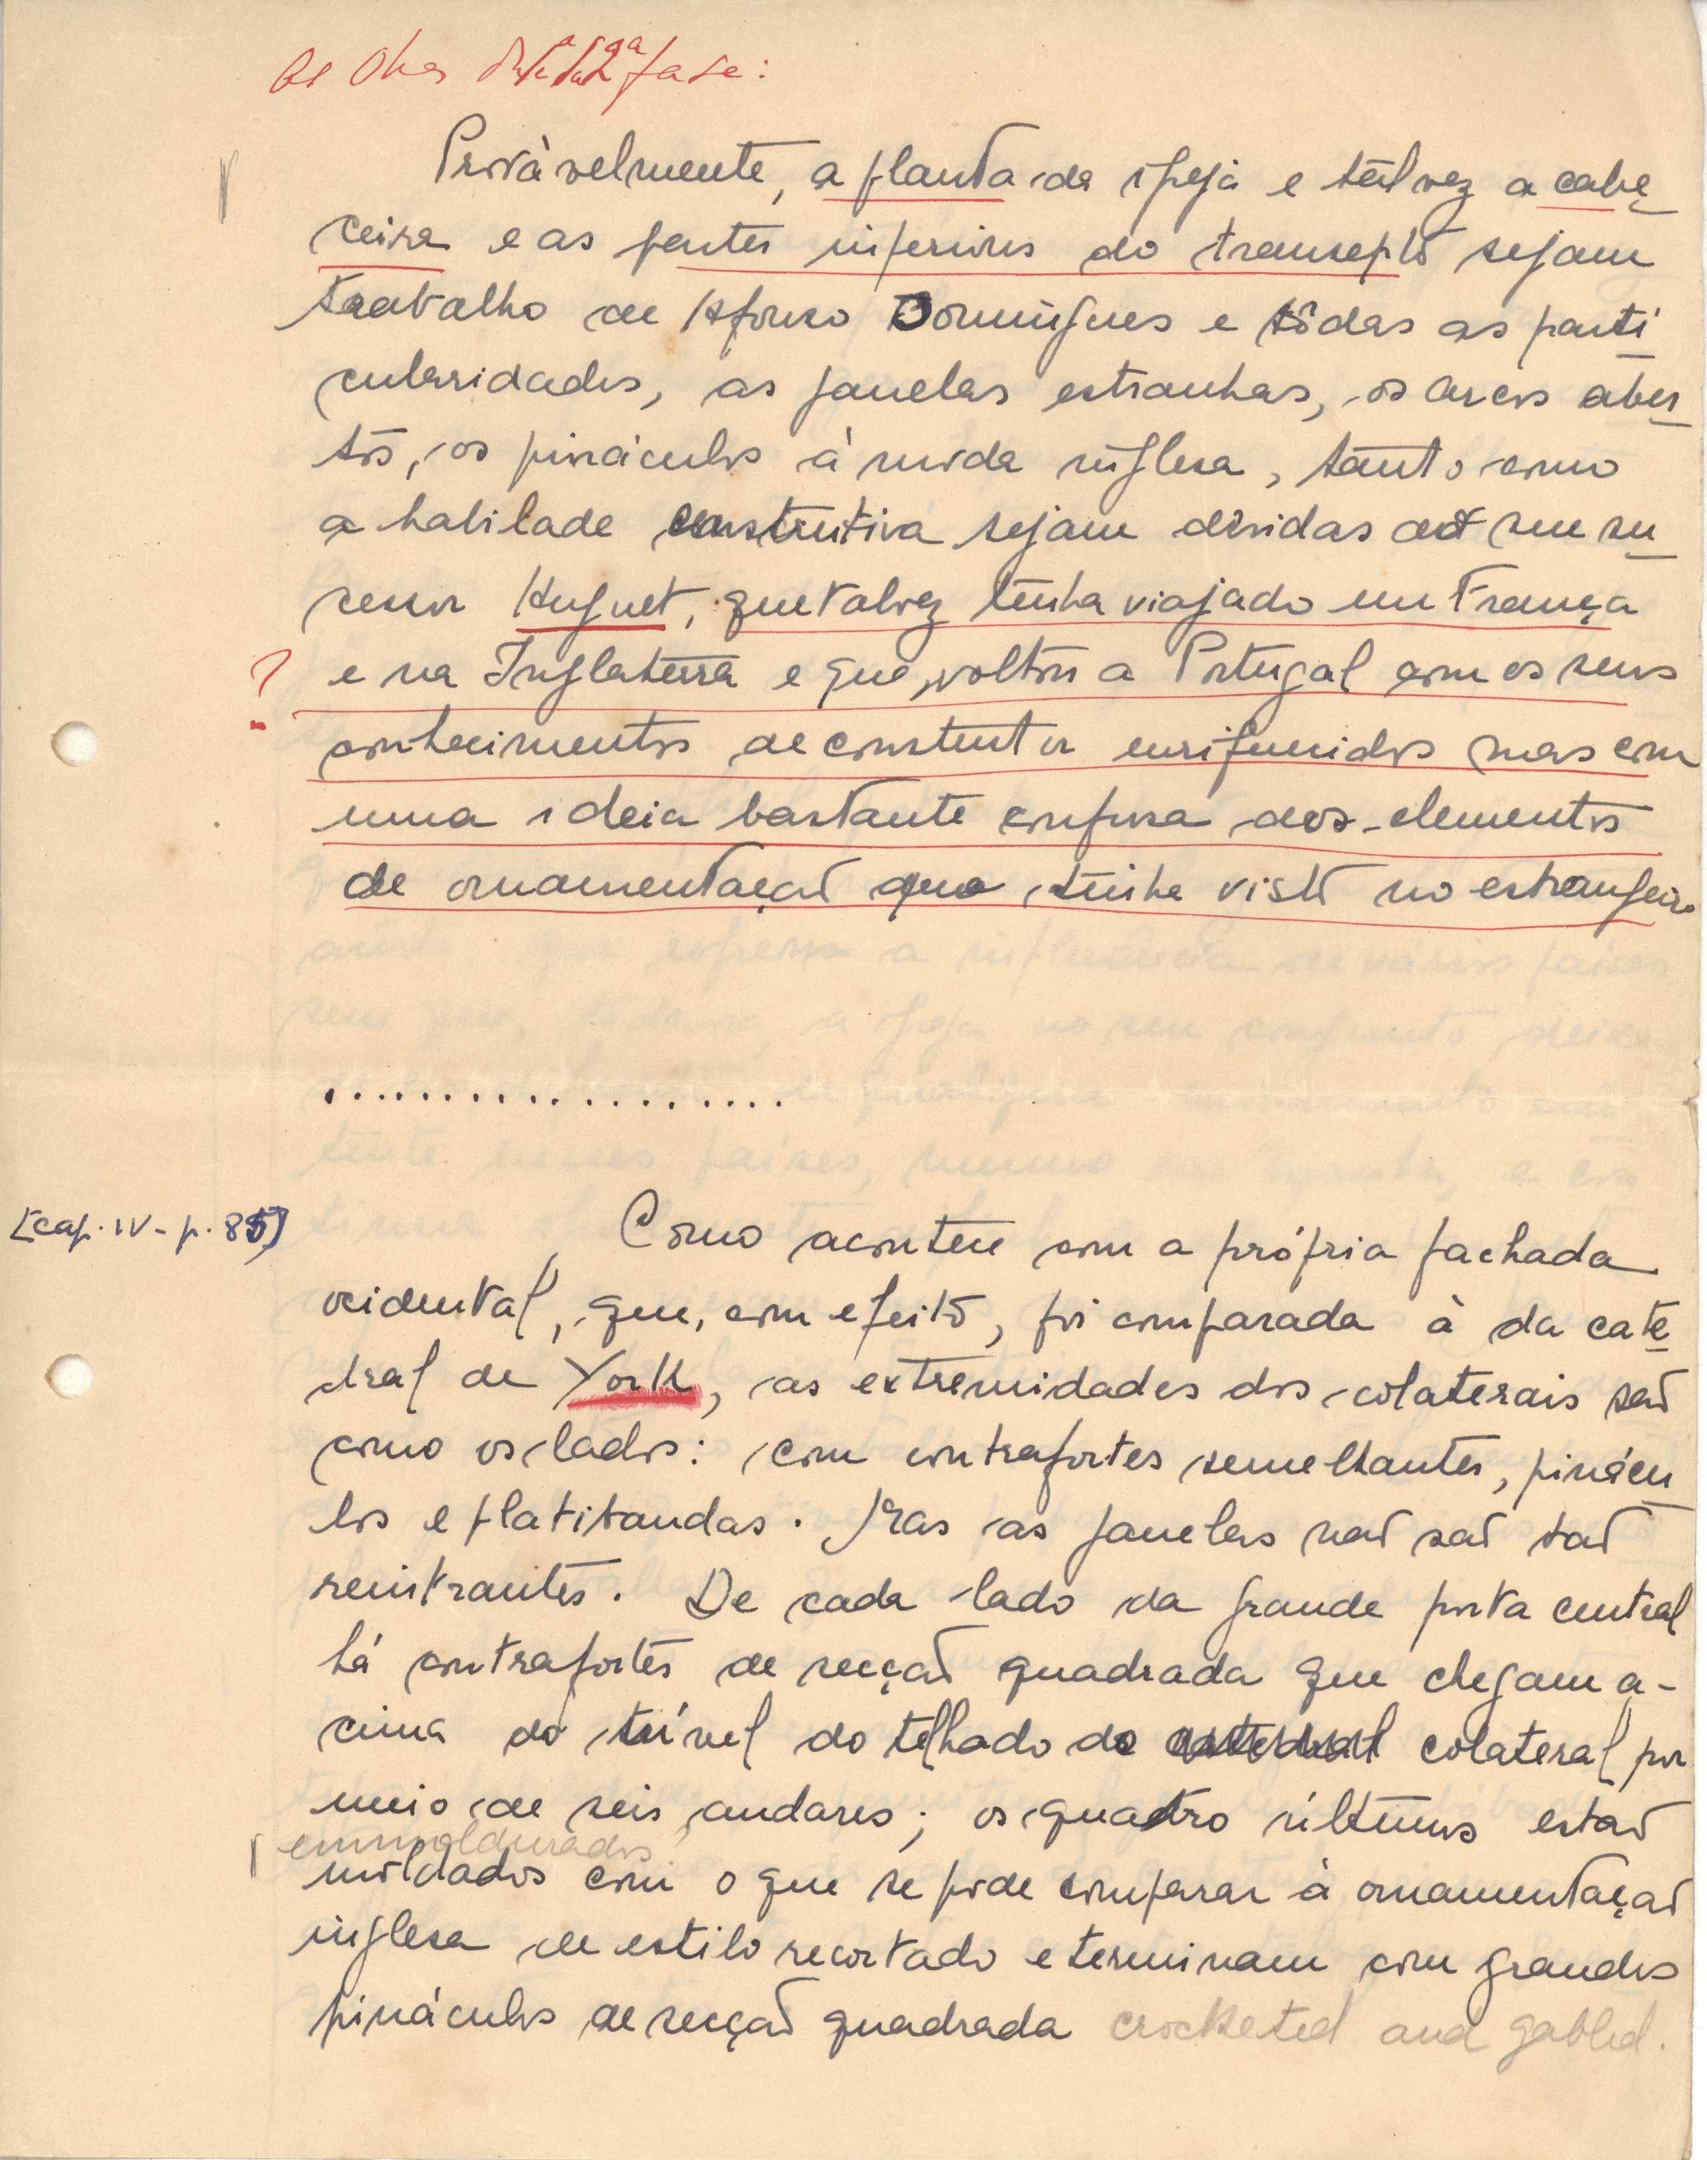 As obras desta 2ª fase:
Provàvelmente, a planta da igreja e talvez a cabe
ceira e as partes inferiores do transepto sejam
trabalho de Afonso Domingues e tôdas as parti
cularidades, as janelas estranhas, os arcos aber-
tos, os pináculos à moda inglesa, tanto como
a habilade construtiva sejam devidas ao seu su
cessor Huguet, que talvez tenha viajado em França
? e na Inglaterra e que, voltou a Portugal com os seus
conhecimentos de construtor enriquecidos mas com
uma ideia bastante confusa dos elementos
de ornamentação que tinha visto no estrangeiro
....................
[cap. IV - p. 85]
Como acontece com a própria fachada
ocidental, que, com efeito, foi comparada à da cate
dral de York, as extremidades dos colaterais são
como os lados: com contrafortes semelhantes, pinácu
los e platibandas. Mas as janelas não são tão
reintrantes. De cada lado da grande porta central
há contrafortes de secção quadrada que chegam a-
cima do nível do telhado do colateral por
meio de seis andares; os quatro últimos estão
emmoldurados
moldados com o que se pode comparar à ornamentação
inglesa de estilo recortado e terminam com grandes
pináculos de secção quadrada crocketed and gabled.